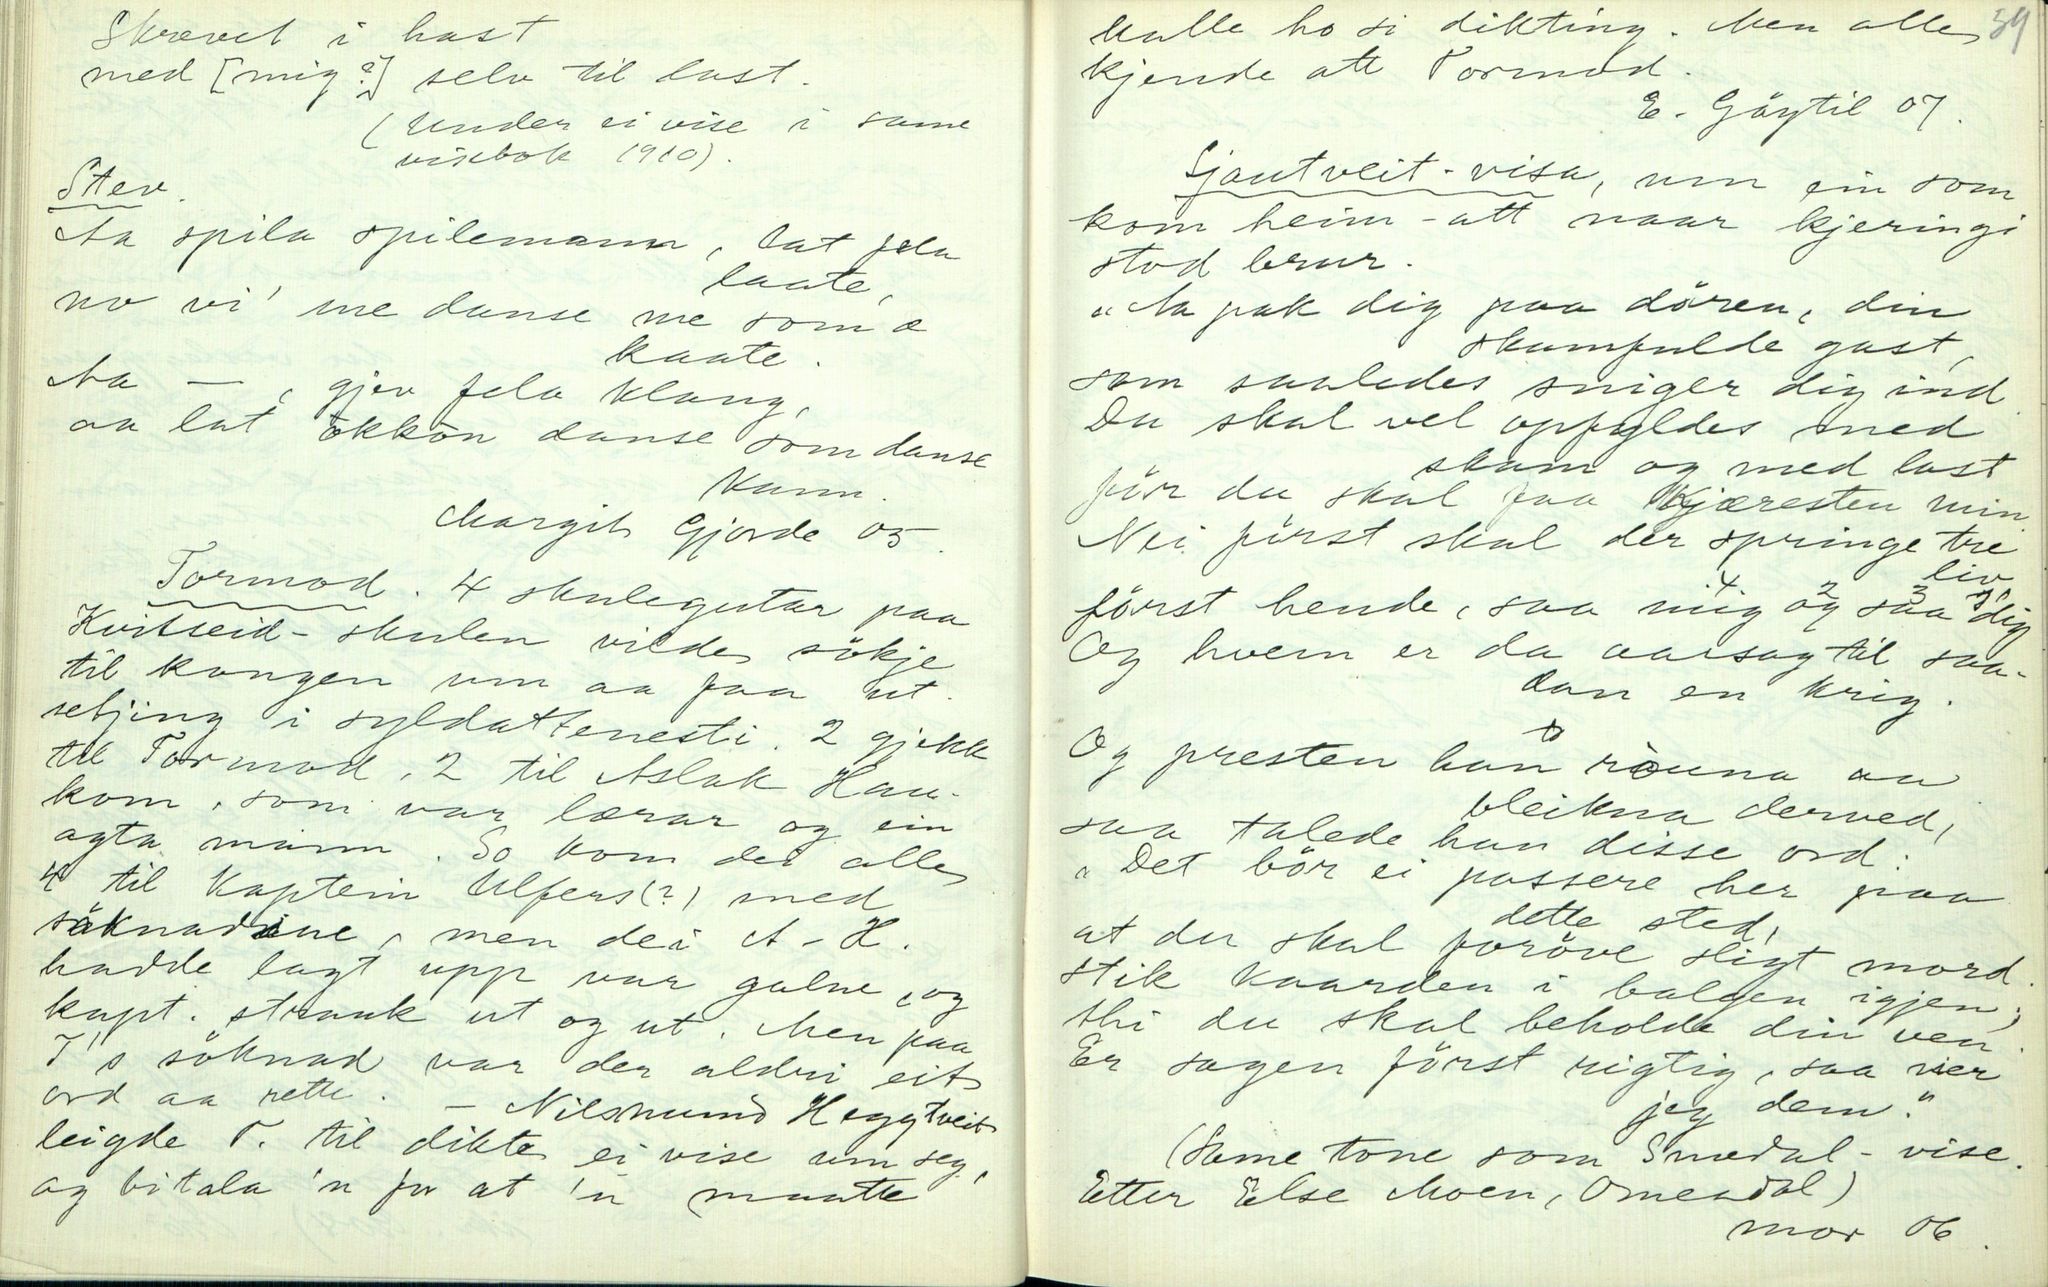 Skrevet i hast
med [mig?] selv til last.
(Under ei vise i same
visebok 1910).
Stev.
Aa spila spilemann, lat fela
laate,
no vi' me danse me som æ
kaate.
Aa — , gjev fela klang,
aa lat økkøn danse som danse
kann.
Margit Gjorde 05.
Tormod. 4 skulegutar paa
Kvitseid-skulen vilde sökje
til kongen um aa faa ut-
setjing i syldattenesti. 2 gjekk
til Tormod, 2 til Aslak Hau-
kom, som var lærar og ein
agta mann. So kom dei alle
4 til Kaptein Ulfers(?) med
söknadine, men dei A-H.
hadde lagt upp var galne, og
kapt. strauk ut og ut. Men paa
T's söknad var der aldri eit
ord aa rette. — Nilsmund Heggtveit
leigde T. til dikte ei vise um seg,
og bitala 'n for at 'n maatte
34
kalle ho si dikting. Men alle
kjende att Tormod.
E. Göytil 07.
Sjautveit-visa, um ein som
kom heim-att naar kjeringi
stod brur.
"Aa pak dig paa dören, din
skamfulde gast,
som saaledes sniger dig ind.
Du skal vel opfyldes med
skam og med last
för du skal faa kjæresten min.
Nei först skal der springe tre
liv,
först hende, saa mig og saa dig
4 2 3 1
Og hvem er da aarsag til saa-
dan en krig.
Og presten han rouna aa
bleikna derved,
saa talede han disse ord.
"Det bör ei passere her paa
dette sted,
at du skal foröve sligt mord.
Stik kaarden i balgen igjen;
thi du skal beholde din ven.
Er sagen först rigtig, saa vier
jeg dem."
(Same tone som Smedal-vise.
Etter Else Moen, Omendal)
mor 06.